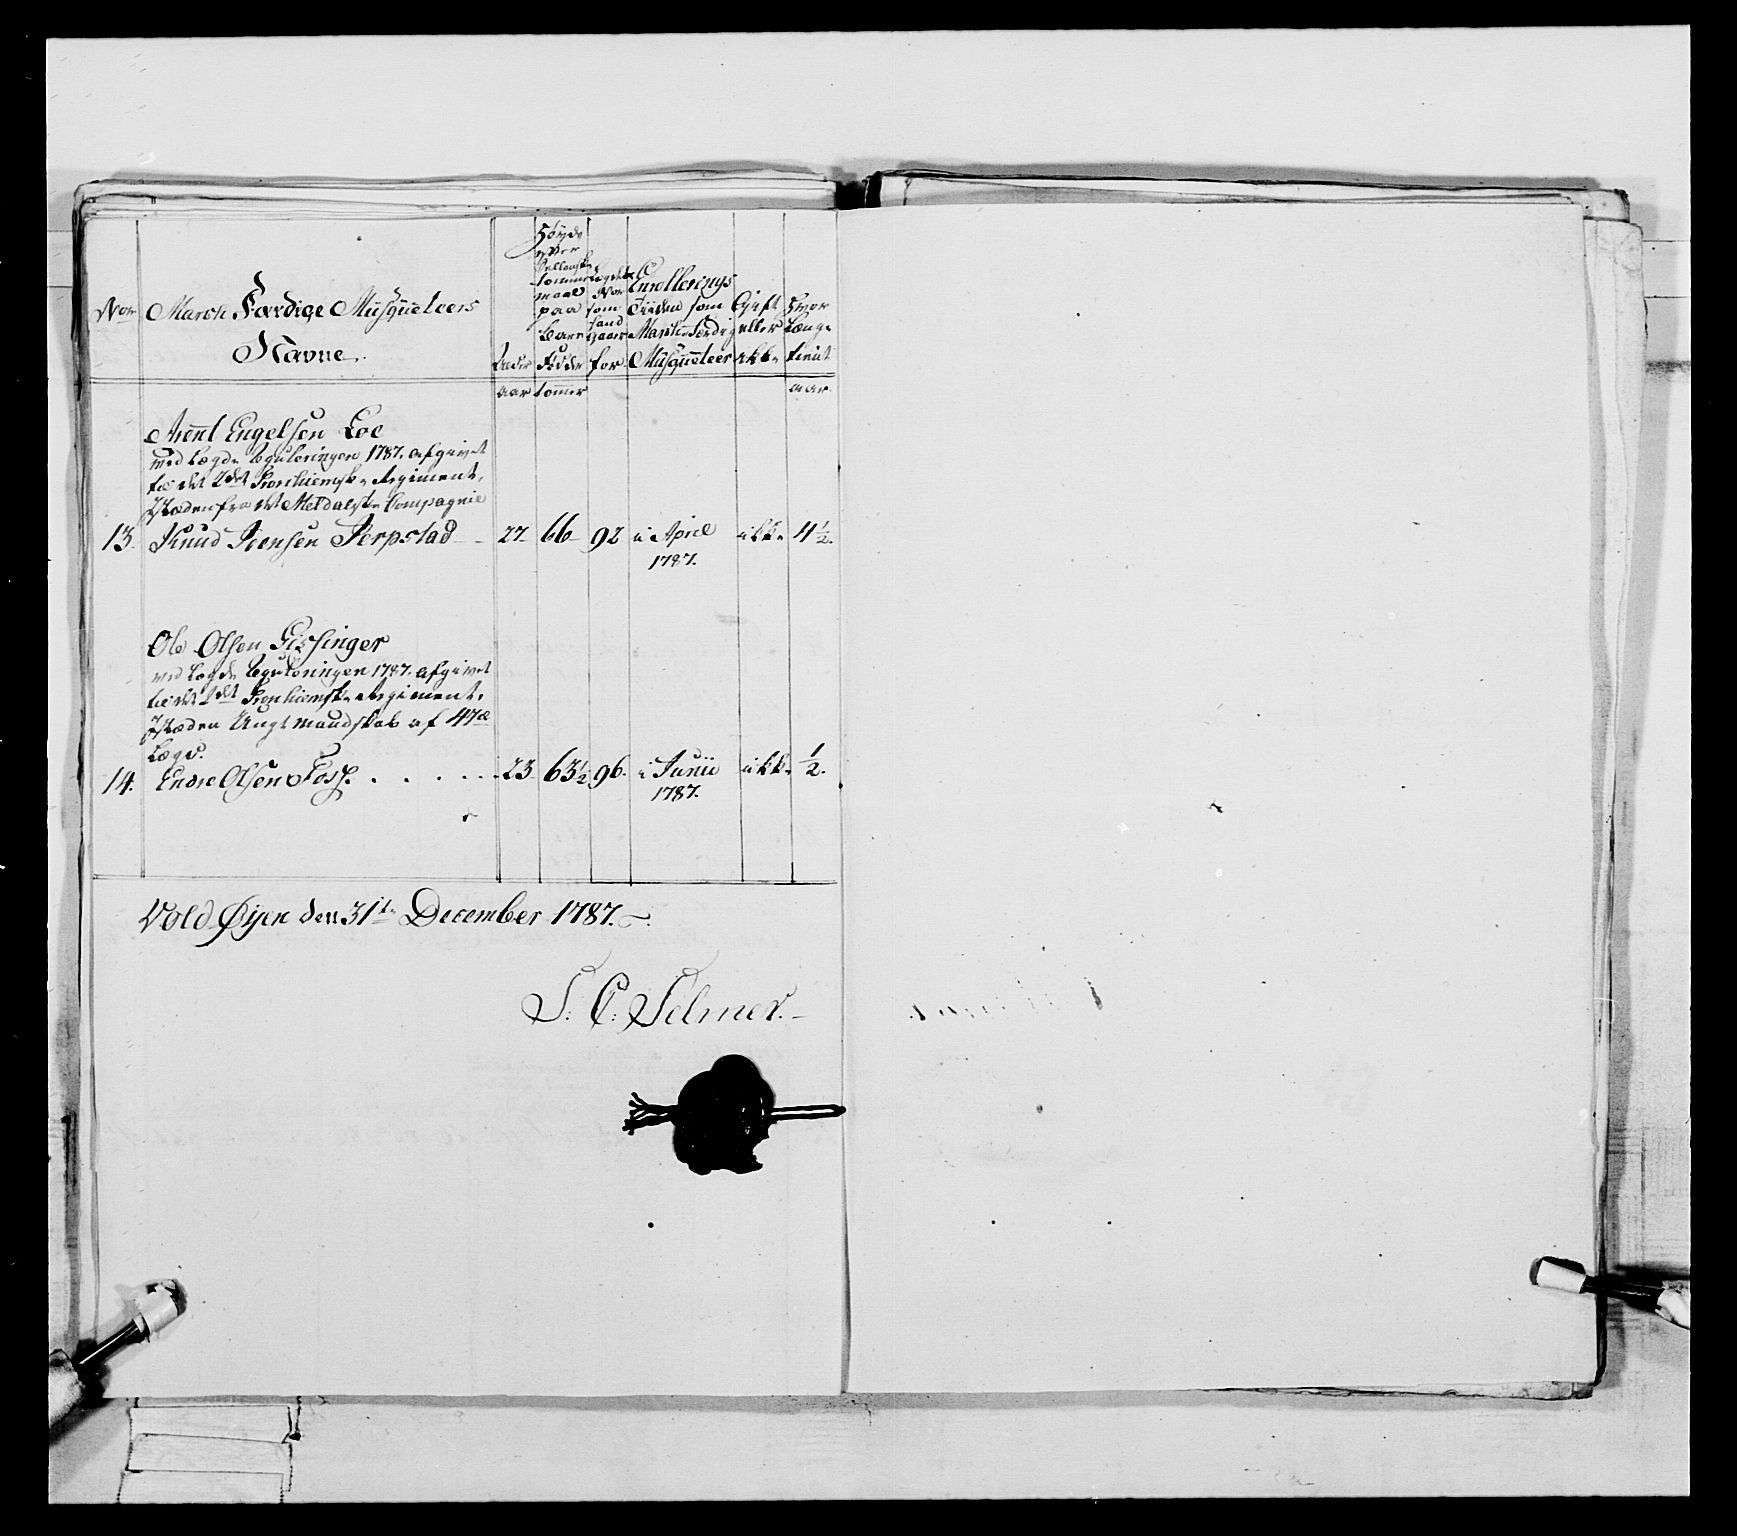 Nor
March Færdige Musqueteers
Navne.
Alder
Höyde
efter
Sællandske
tomme
maal
paa
bare
Födder
Lægdets
Nor
som
hand
staaer
for
Enrollerings
Tiiden som
March-Færdig
Musqueteer
Gift
eller
ikke
Hvor
længe
tient
aar tomer aar.
Arent Engelsen Loe
ved Lægds Reguleringen 1787. afgivet
til det 2det Tronhiemske Regiment,
I Stæden fra det Meldalske Compagnie
13. Knud Iversen Serpstad - 27- 66- 92 i April ikke 4 1/2.
1787.
Ole Olsen Gissinger
ved Lægds Reguleringen 1787. afgivet
til det 2det Tronhiemske Regiment.
I Stæden Ungt Mandskab af 47de
Lægd.
14. Endre Olsen Foss. . . . . . 23- 63 1/2 96. i Junii ikke 1/2.
1787.
Vold Øyen den 31te December 1787.
S: C: Selmer.